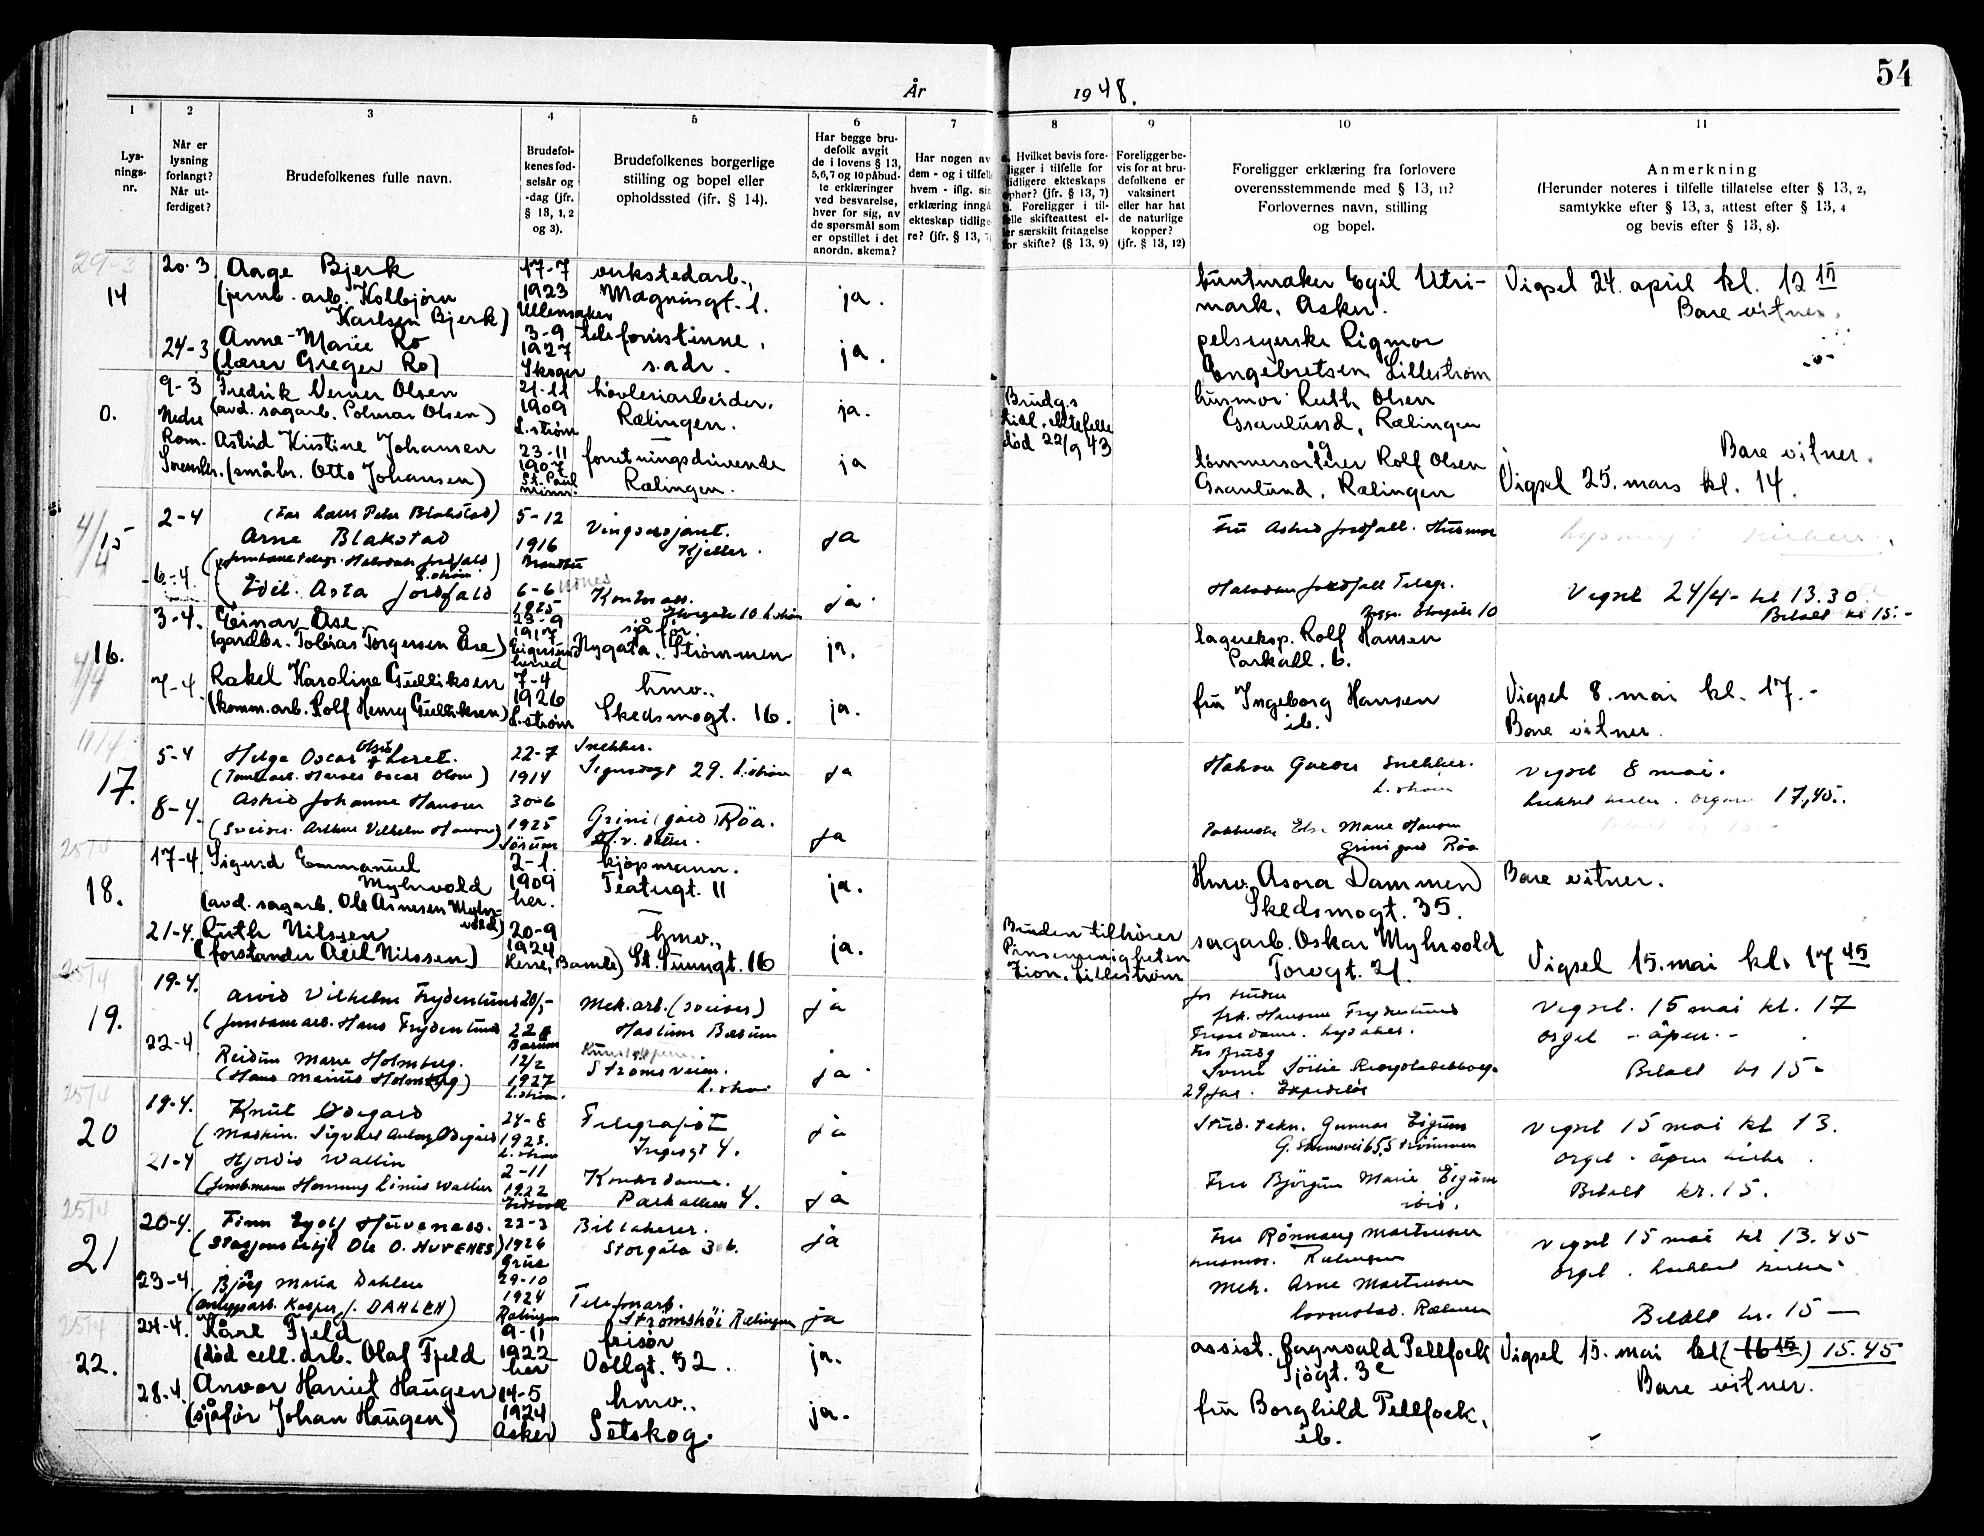 54
År 1948.
1
2
3
4
5
6
7
8
9
10
11
Lys-
nings-
nr.
Når er
lysning
forlangt?
Når ut-
ferdiget?
Brudefolkenes fulle navn.
Brudefol-
kenes fød-
selsår og
-dag (jfr.
§ 13, 1, 2
og 3).
Brudefolkenes borgerlige
stilling og bopel eller
opholdssted (jfr. § 14).
Har begge bru-
defolk avgit
de i lovens § 13,
5,6,7 og 10 påbud-
te erklæringer
ved besvarelse,
hver for sig, av
de spørsmål som
er opstillet i det
anordn. skema?
Har nogen av
dem - og i tilfelle
hvem - iflg. sin
erklæring inngå
ekteskap tidlige-
re? (jfr. § 13, 7
Hvilket bevis fore-
ligger i tilfelle for
tidligere ekteskaps
ophør? (jfr. § 13, 7)
Foreligger i til-
felle skifteattest el-
er særskilt fritagelse
for skifte? (§ 13, 9)
Foreligger be-
vis for at bru-
defolkene er
vaksinert
eller har hat
de naturlige
kopper?
(jfr. § 13, 12)
Foreligger erklæring fra forlovere
overensstemmende med § 13, 11?
Forlovernes navn, stilling
og bopel.
Anmerkning
(Herunder noteres i tilfelle tillatelse efter § 13, 2,
samtykke efter § 13, 3, attest efter § 13, 4
og bevis efter § 13, 8).
29-3
14
20-3
Aage Bjerk
(jernb. arb. Kolbjørn
Karlsen Bjerk)
17-7
1923
Ullensaker
verkstedarb.,
Magnusgt. 1.
ja.
buntmaker Egil Utri-
mark, Asker.
Vigsel 24. april kl. 12 15
Bare vitner.
24-3
Anne-Marie Ro
(lærer Greger Ro)
3-9
1927
Skoger
telefonistinne,
s.adr.
ja.
pelssyerske Rigmor
Engebretsen Lillestrøm
0.
9-3
Nedre
Rom.
Fredrik Verner Olsen
(avd. sagarb. Polmar Olsen)
21-11
1909
L.strøm
høvleriarbeider,
Rælingen.
ja.
Brudg.s
tidl. ektefelle
død 22/9 43
husmor Ruth Olsen
Granlund, Rælingen
og
Astrid Kristine Johansen
(småbr. Otto Johansen)
23-11
1907
St. Paul
Minn.
forretningsdrivende
Rælingen.
ja
tømmersorterer Rolf Olsen
Granlund, Rælingen
Bare vitner.
Vigsel 25. mars kl. 14.
4/4
15
2-4
(Far Lars Peder Blakstad)
Arne Blakstad
5-12
1916
Brandbu
Vingsersjant.
Kjeller.
ja
Fru Astrid Jordfall. Husmor
6-4
(Jernbanetelegr. Halvdan Jordfald
L.strøm)
Edil. Asta Jordfald
6-6
1925
Kontorass.
Storgata 10 L.strøm
ja.
Halvdan Jordfall Telegr.
Storgata 10
Vigsel 24/4 - kl 13.30
Betalt kr 15.-
16.
4/4
3-4.
Einar Åse
(gardbr. Tobias Torgersen Åse)
23-9
1917
Eigersund
herred
sjåfør.
Nygata, Strømmen
ja.
lagereksp. Rolf Hansen
Parkall. 6.
7-4.
Rakel Karoline Gulliksen
(komm.arb. Rolf Henry Gulliksen)
7-4
1926
L.strøm
hmv..
Skedsmogt. 16.
ja.
fru Ingeborg Hansen
ib.
Vigsel 8. mai kl. 17.-
Bare vitner.
11/4
17.
5-4
Helge Oscar Olsen
(Tomtearb. Oscar Olsen)
22-7
1914
Snekker.
29. L.strøm
ja
Snekker.
L.strøm
Vigsel 8 mai.
17,45.
8-4.
Astrid Johanne Hansen
(Sveiser. Arthur Vilhelm Hansen)
30-6
1925
Sørum
Grini (gård) Røa.
ja
Else Marie Hansen
Grini gård Røa
25/4
18.
17-4.
Sigurd Emmanuel
Myhrvold
(avd. sagarb. Ole Asmesen Myhr-
vold)
2-1.
1909
her.
kjøpmann.
Teatergt. 11
ja.
Hmv. Asora Dammen
Skedsmogt. 35.
Bare vitner.
21-4.
Ruth Nilssen
(forstander Axel Nilssen)
20-9
1924
Herre, Bamble)
hmv.,
St. Sunngt. 16
ja.
Bruden tilhører
Pinsemenigheten
Zion, Lillestrøm
sagarb. Oskar Myhrvold
Torvgt. 21.
Vigsel 15. mai kl. 17 45
25/4
19.
19-4.
Arvid Vilhelm Frydenlund
(Jernbanearb. Hans Frydenlund
Bærum
Mek. arb. (sveiser)
Haslum Bærum
ja
frk. Frydenlund
Lysaker.
Vigsel. 15 mai kl. 17
orgel - åpen.-
22-4
Reidun Marie Holmberg.
(Hans Marius Holmberg)
12/2
1927
L.strøm.
Strømsveien.
L.strøm
ja
Betalt kr 15-
25/4
20
19-4.
Knut Ødegård
24-8
1923.
L.strøm
Telegrafist
ja
Stud. tekn. Gunnar Eigum
Strømmen
Vigsel 15 mai kl 13.
orgel - åpen kirke.
21-4
Hjørdis Wallin
(Jernb.mann Henning Linus Wallin
2-11
1922
Kontordame.
Parkalleen 4.
ja
Fru Bjørgun Marie Eigum
ibid.
Betalt kr. 15.
25/4
21
20-4.
Finn Egolf Huvenæss.
(Stasjonsbetj. Ole O. HUVENES)
22-3
1926
Grue
Billakerer.
Storgata 36.
ja
Fru Rønnaug Martinsen
husmor. Rælingen
Vigsel 15 mai kl 13.45
orgel. lukket kirke
23-4.
Bjørg Maria Dahlen
(anleggsarb. Kasper J. DAHLEN)
29-10
1924
Rælingen
Telefonarb.
Strømshøi Rælingen
ja
Mek. Arne Martinsen
Rælingen
Betalt kr. 15 —
25/4
22.
24-4.
Kåre Fjeld
(død cell.arb. Olaf Fjeld
9-11
1922
her
frisør
Vollgt. 52.
ja.
assist. Ragnvald Pellfock
Sjøgt. 3c
Vigsel 15. mai kl (16 15) 15.45
Bare vitner.
28.4.
Anvor Harriet Haugen
(sjåfør Johan Haugen)
14-5
1924
Asker
hmv..
Setskog.
ja.
fru Borghild Pellfock,
ib.